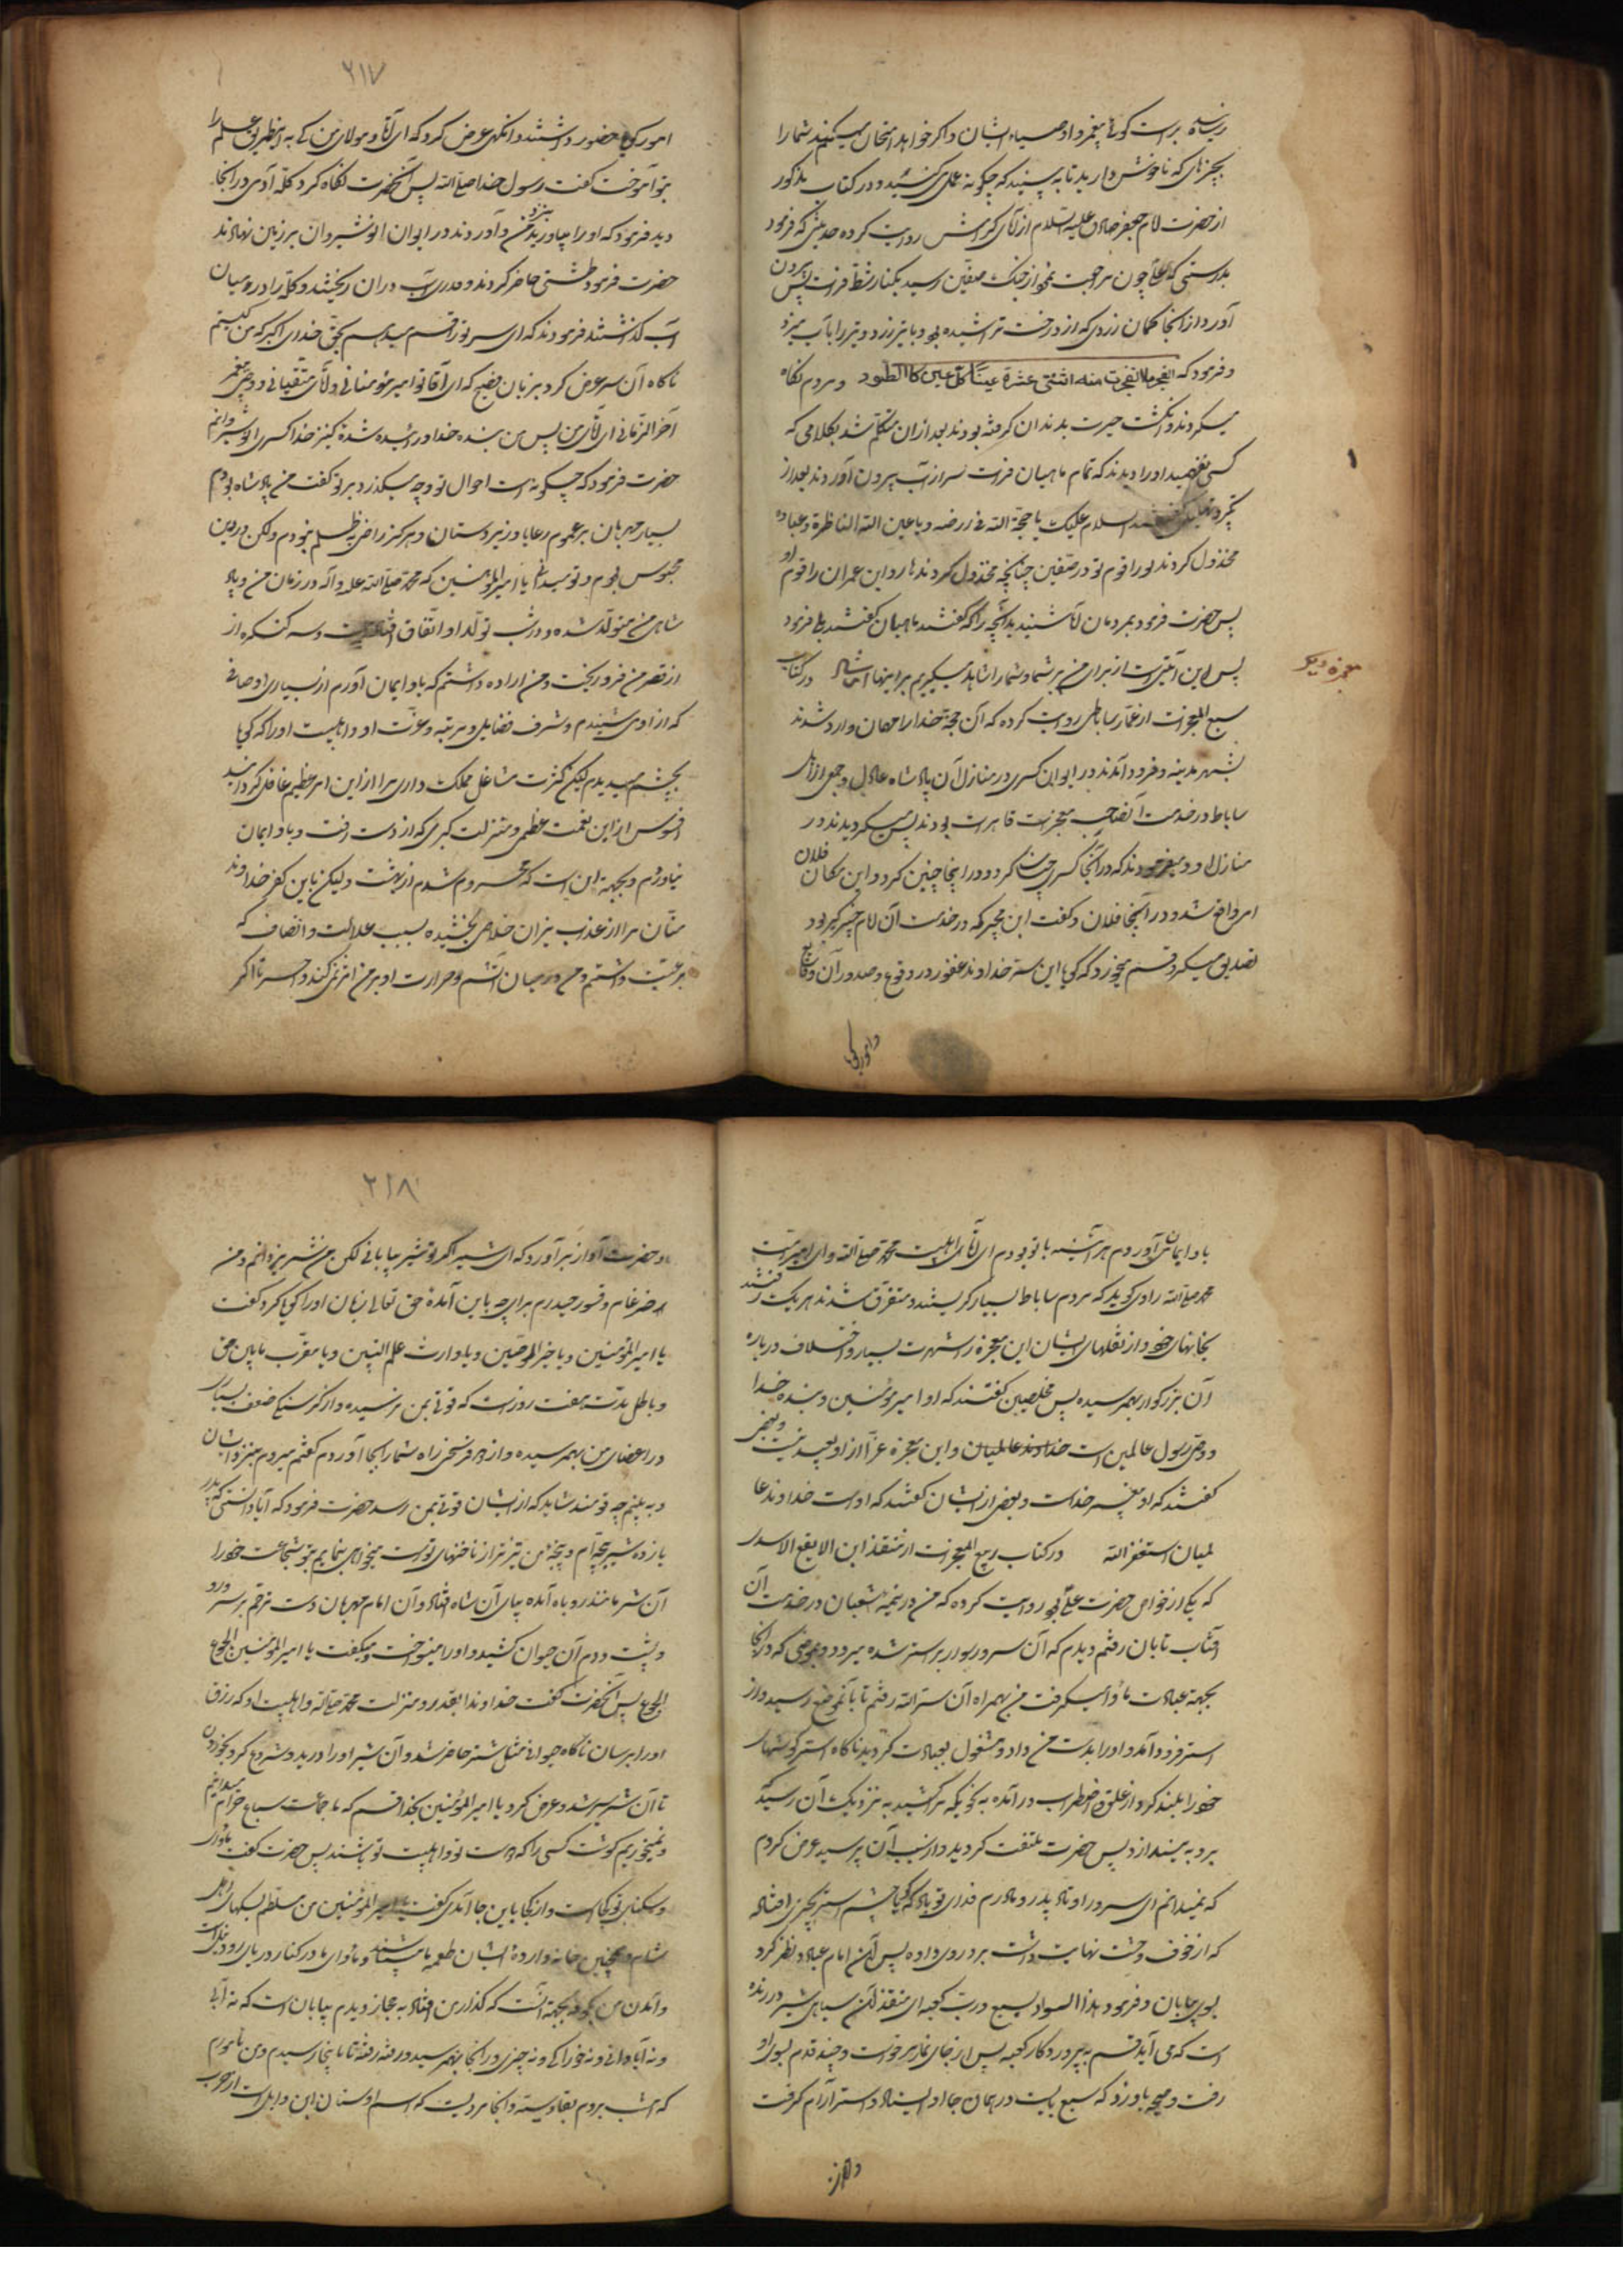 رسیده براست گوئی پیغمبر و اوصیاء ایشان و اگر خواهد امتحان میکند شما را
بچیزهای که ناخوش دارید تا به بیند که چگونه عمل میکنید و در کتاب مذکور
از حضرت امام جعفر صادق علیه السلام از آبای کرامش روایت کرده حدیثی که فرمود
بدرستی که علی چون مراجعت نمود از جنگ صفین رسید بکنار شط فرات پس بیرون
آورد از آنجا کمان زردی که از درخت تراشیده بود و با تیر زرد و تیر را باب میزد
و فرمود که انفجر فانفجرت منه اثنتی عشرة عینا کل عین کالطود و مردم نگاه
میکردند و انگشت حیرت بدندان گرفته بودند بعد از ان متکلم شد بکلامی که
کسی نفهمید او را دیدند که تمام ماهیان فرات سر از آب بیرون آوردند بعد از
تکبیر و تهلیل گفتند السلام علیک یا حجة الله فی ارضه و یا عین الله الناظرة فی عباده
مخذول کردند تو را قوم تو در صفین چنانچه مخذول کردند هارون ابن عمران را قوم او
پس حضرت فرمود بمردمان آیا شنیدید آنچه را که گفتند ماهیان گفتند بلی فرمود
پس این آیتی است از برای من بر شما و شما را شاهد میگیرم بر اینها انشاءالله در کتاب
معجزه دیگر
سبع المعجزات از عمار ساباطی روایت کرده که آن حجة خدا را مهمان وارد شدند
بشهر مدینه و فرود آمدند در ایوان کسری در منازل آن پادشاه عادل و جمعی از اهل
ساباط در خدمت آنصاحب معجزات قاهرات بودند پس میگردیدند در
منازل او و میفرمودند که در آنجا کسری چنان کرد و در اینجا چنین کرد و این مکان فلان
امر واقع شد و در آنجا فلان و گفت ابن مجیر که در خدمت آن امام خبیر بود
تصدیق میکرد و قسم میخورد که گویا این ستر خداوند غفور در وقوع و صدور آن وقایع
و امور گویا
۲۱۷
امور گویا حضور داشتند و انگهی عرض کرد که ای آقا و مولای من که به اینطریق علم را
بتو آموخت گفت رسول خدا صلی الله پس آنحضرت نگاه کرد کله آدمی در آنجا
دید فرمود که او را بیاورید نزد من و آوردند در ایوان انوشیروان بر زمین نهادند
حضرت فرمود طشتی حاضر کردند و قدری آب در ان ریختند و کله را در میان
آب گذاشتند فرمودند که ای سر تو را قسم میدهم بحق خدای اکبر که من کیستم
ناگاه آن سر عرض کرد بزبان فصیح که ای آقا تو امیر مؤمنانی و آقای متقیانی و وصی پیغمبر
آخر الزمانی ای آقای من پس من بنده خدا و رانده شده کنیز خدا کسری انوشیروانم
حضرت فرمود که چگونه است احوال تو و چه میگذرد بر تو گفت من پادشاه بودم
بسیار مهربان بر عموم رعایا و زیردستان و هرگز راضی بظلم نبودم ولکن در دین
مجوس بودم و تو میدانی یا امیرالمؤمنین که محمد صلی الله علیه و آله در زمان من و پادشاهی
من متولد شده و در شب تولد او اتفاق افتاد بیست و سه کنگره از
از قصر من فرو ریخت و من اراده داشتم که باو ایمان آورم از بسیاری اوصافی
که از او می شنیدم و شرف فضایل و مرتبه و عزت او و اهلبیت او را که گویا
بچشم میدیدم لیکن کثرت مشاغل مملکت داری مرا از این امر عظیم غافل گردانید
افسوس از این نعمت عظمی و منزلت کبری که از دست رفت و باو ایمان
نیاوردم و بجهة این است که محروم شدم از بهشت و لیکن باین کفر خداوند
منان مرا از عذاب نیران خلاصی بخشیده بسبب عدالت و انصاف که
بر رعیت داشتم و من در میان آتشم و حرارت او بر من اثر نمی کند و احسرتا اگر
باو ایمان آوردم هر آینه با تو بودم ای آقای اهلبیت محمد صلی الله و ای امیر امت
محمد صلی الله راوی گوید که مردم ساباط بسیار گریستند و متفرق شدند هر یک رفتند
بخانهای خود و از نقلهای ایشان این معجزه را شهرت بسیار و اختلاف درباره
آن بزرگوار بهمرسیده پس مخلصین گفتند که او امیر مؤمنین و بنده خدا
و وصی رسول عالمین است خداوند عالمیان و این معجزه غرا از او بعید نیست و بعضی
گفتند که او پیغمبر خداست و بعضی از ایشان گفتند که اوست خداوند عا
لمیان استغفر الله در کتاب ربیع المعجزات از منقذ ابن الابقع الاسدی
که یکی از خواص حضرت علی بود روایت کرده که من در نیمه شعبان در خدمت آن
آفتاب تابان رفتم دیدم که آن سرور سوار بر استر شده میرود و بموضعی که در آنجا
بجهة عبادت مأوا میگرفت من همراه آن ستر الله رفتم تا بآنموضع رسید و از
استر فرود آمد و او را بدست من داد و مشغول بعبادت گردید ناگاه استر گوشهای
خود را بلند کرد و از قلق و اضطراب درآمده به نحویکه مرا کشید به نزدیک آن رسید که
مرد به بیندازد پس حضرت ملتفت گردید و از سبب آن پرسید عرض کردم
که نمیدانم ای سرور اوتاد پدر و مادرم فدای تو باد که گویا چشم استر بچیزی افتاد
که از خوف و وحشت نهایت وحشت بر او روی داده پس آن امام عباد نظر کرد
بسوی بیابان و فرمود هذا السواد سبع و رب کعبه ای منقذ این سیاهی شیر درنده
است که می آید قسم به پروردگار کعبه پس از جای نماز برخواست و چند قدم بسوی او
رفت و صیحه باو زد که سبع بایست در همان جا او ایستاد و استر آرام گرفت
و حضرت
۲۱۸
و حضرت آواز بر آورد که ای شیر اگر تو شیر بیابانی لکن من شیر یزدانم و من
ضرغام و قسور حیدرم برای چه باین آمدهٔ حق تعالی زبان او را گویا کرد و گفت
یا امیر المؤمنین و یا خیر الوصیین و یا وارث علم النبیین و یا مفرق ما بین حق
و باطل مدت هفت روز است که قوتی بمن نرسیده و از گرسنگی ضعف بسیار
در اعضای من بهمرسیده و از دو فرسخی راه شما را اینجا آوردم گفتم میروم بنزد ایشان
و به بینم چه قومند شاید که از ایشان قوتی بمن رسد حضرت فرمود که آیا ندانستی که پدر
یازده شیر بچه ام و پنجه من تیزتر از ناخنهای توست میخواهی بنمایم بتو شجاعت خود را
آن شیر مانند روباه آمده بپای آن شاه افتاد و آن امام مهربان دست ترحم بر سر و رو
و پشت و دم آن حیوان کشید و او را مینواخت و میگفت یا امیر المؤمنین الجوع
الجوع پس آنحضرت گفت خداوندا بقدر و منزلت محمد صلی الله و اهلبیت او که رزق
او را برسان ناگاه حیوانی مثل شتر حاضر شد و آن شیر او را درید و شروع کرد بخوردن
تا آن شیر سیر شد و عرض کرد یا امیر المؤمنین بخدا قسم که ما جماعت سباع حرام میدانیم
و نمیخوریم گوشت کسی را که دوست تو و اهلبیت تو باشند پس حضرت گفت ماوای
و مسکنای تو کجاست و از کجا باین جا آمدی گفت یا امیر المؤمنین من مسلطم بسگهای اهل
شام و همچنین خانه و اردهٔ ایشان طعمه ما میباشند و مأوای ما در کنار دریای رود نیل است
و آمدن من بکوفه بجهة آنست که گذار من افتاد به حجاز و دیدم بیابان است که نه آبی
و نه آبادانی و نه خوراکی و نه چیزی در آنجا بهمرسید و رفته رفته تا باینجا رسیدم و من مامورم
که امشب بروم بقادسیه و آنجا مردیست که اسم او سنان ابن وابل است از حرب